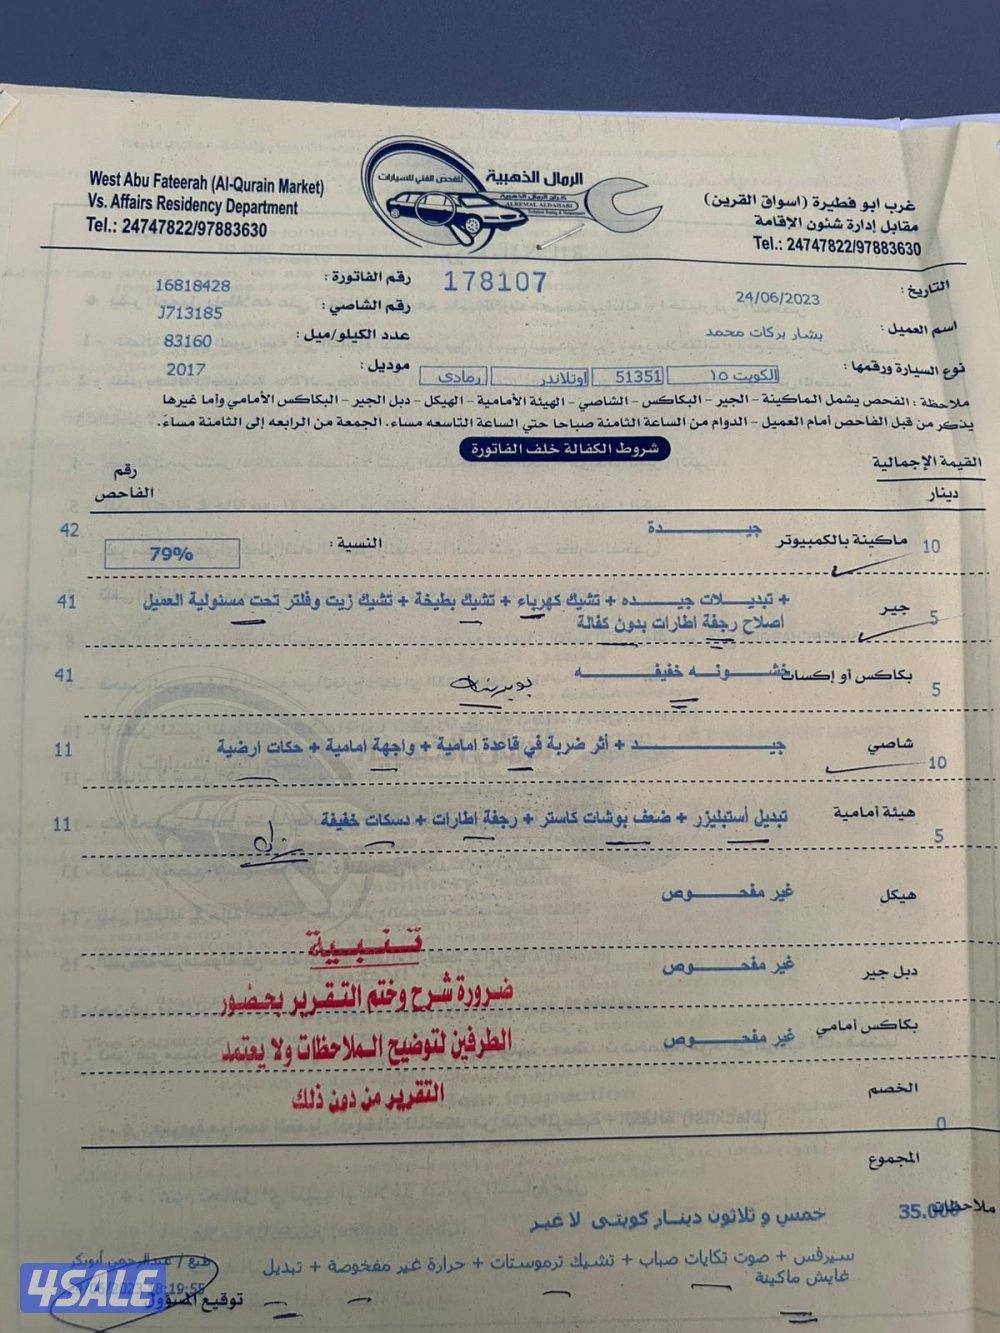 West Abu Fateerah (Al-Qurain Market)
Vs. Affairs Residency Department
Tel.: 24747822/97883630
الرمال الذهبية
للفحص الفني للسيارات
كراج الرمال الذهبية
ALREMAL ALDAHABI
غرب ابو فطيرة (اسواق القرين)
مقابل إدارة شئون الإقامة
Tel.: 24747822/97883630
التاريخ : 24/06/2023
178107
رقم الفاتورة : 16818428
رقم الشاصي : J713185
اسم العميل : بشار بركات محمد
عدد الكيلو/ميل : 83160
نوع السيارة ورقمها : الكويت ١٥ 51351 اوتلاندر رمادى
موديل : 2017
ملاحظة : الفحص يشمل الماكينة - الجير - البكاكس - الشاصي - الهيئة الأمامية - الهيكل - دبل الجير - البكاكس الأمامي وأما غيرها
يذكر من قبل الفاحص أمام العميل - الدوام من الساعة الثامنة صباحا حتي الساعة التاسعه مساء. الجمعة من الرابعه إلى الثامنة مساء.
شروط الكفالة خلف الفاتورة
القيمة الإجمالية
دينار
رقم
الفاحص
10 ماكينة بالكمبيوتر جيدة النسبة : 79% 42
5 جير + تبديلات جيده + تشيك كهرباء + تشيك بطيخة + تشيك زيت وفلتر تحت مسئولية العميل 41
اصلاح رجفة اطارات بدون كفالة
5 بكاكس أو إكسات خشونه خفيفه 41
10 شاصي جيد + أثر ضربة في قاعدة امامية + واجهة امامية + حكات ارضية 11
5 هيئة أمامية تبديل أستبليزر + ضعف بوشات كاستر + رجفة اطارات + دسكات خفيفة 11
هيكل غير مفحوص
دبل جير غير مفحوص
بكاكس أمامي غير مفحوص
تنبية
ضرورة شرح وختم التقرير بحضور
الطرفين لتوضيح الملاحظات ولا يعتمد
التقرير من دون ذلك
الخصم
0
المجموع
35.000 خمس و ثلاثون دينار كويتى لا غير
ملاحظات
سيرفس + صوت تكايات صباب + تشيك ترموستات + حرارة غير مفحوصة + تبديل
غايش ماكينة
طبع / عبدالرحمن أبوبكر
8:19:55
توقيع المسؤول
4SALE